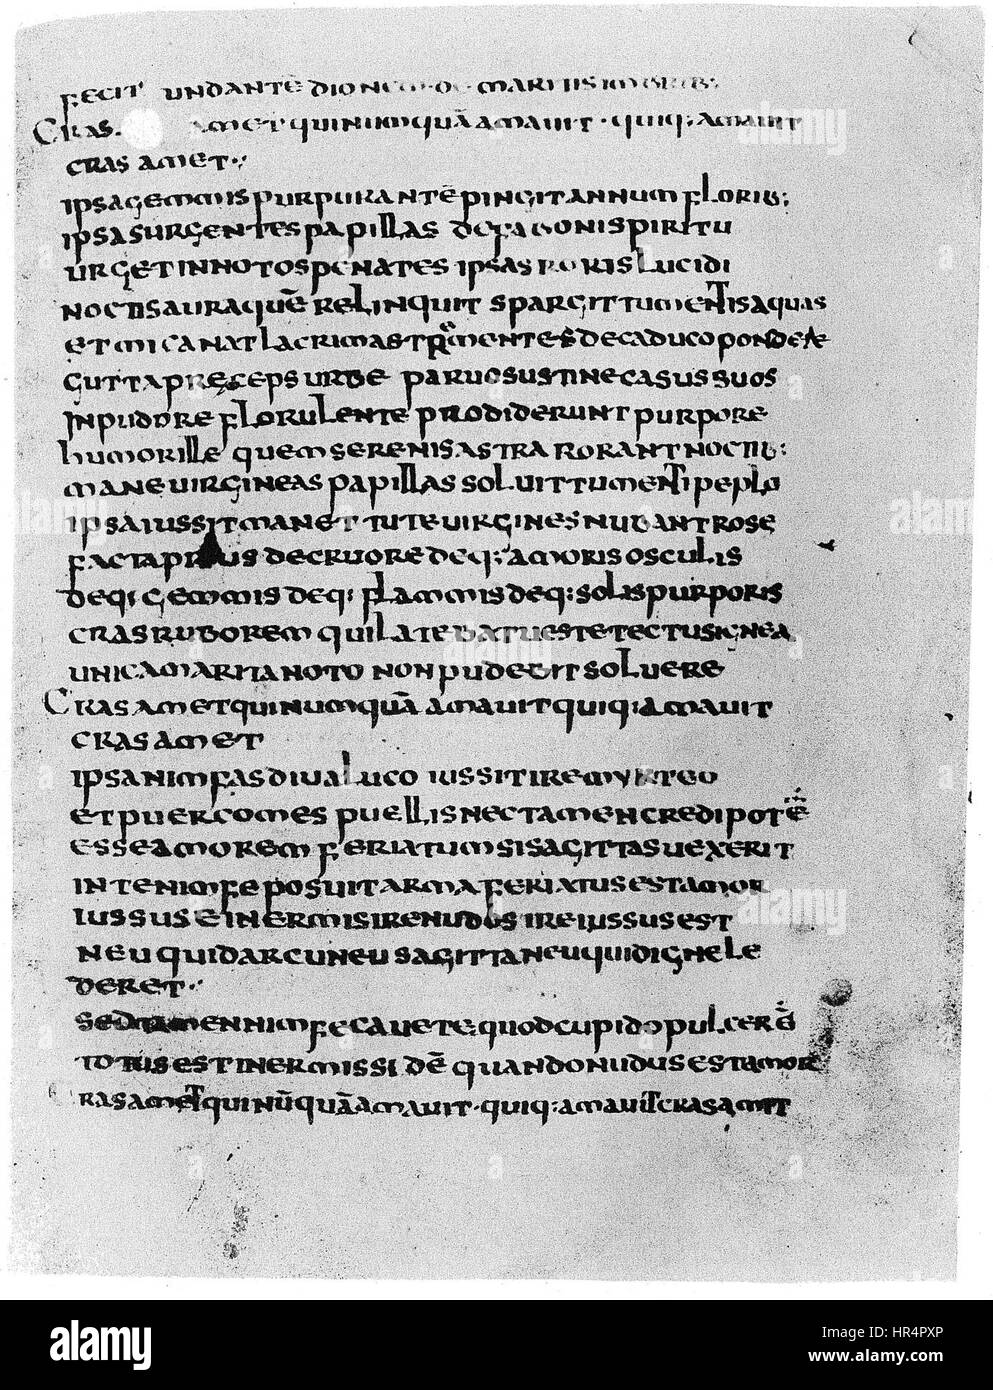 FECIT UNDANTĒ DIONEM DE MARITIS IMBRIB:
CRAS. AMET QUI NUMQUĀ AMAUIT · QUIQ: AMAUIT
CRAS AMET:
IPSA GEMMIS PURPURANTĒ PINGIT ANNUM FLORIB:
IPSA SURGENTES PAPILLAS DEFABONI SPIRITU
URGET IN NOTOS PENATES IPSAS RORIS LUCIDI
NOCTIS AURA QUĒ RELINQUIT SPARGIT TUMENTIS AQUAS
ET MICANAT LACRIMAS TREMENTES DECADUCO PONDERE
GUTTA PRĘCEPS URBE PARUO SUSTINE CASUS SUOS
INPUDORE FLORULENTE PRODIDERUNT PURPORE
HUMOR ILLE QUEM SERENIS ASTRA RORANT NOCTIB:
MANE UIRGINEAS PAPILLAS SOLUIT TUMENTI PEPLO
IPSA IUSSIT MANE TTUTE UIRGINES NUBANT ROSE
FACTA PRIUS DECRUORE DEQ: AMORIS OSCULIS
DEQ: GEMMIS DEQ: FLAMMIS DEQ: SOLIS PURPORIS
CRAS RUBOREM QUI LATEBAT UESTE TECTUS IGNEA
UNICA MARITA NOTO NON PUDEBIT SOLUERE
CRAS AMET QUI NUMQUĀ AMAUIT QUIQ: AMAUIT
CRAS AMET
IPSA NIMFAS DIUA LUCO IUSSIT IRE MYRTEO
ET PUER COMES PUELLIS NEC TAMEN CREDI POTĒ
ESSE AMOREM FERIATUM SI SAGITTAS UEXERIT
INTE NIMFE POSUIT ARMA FERIATUS EST AMOR
IUSSUS EINERMIS IRE NUDOS IRE IUSSUS EST
NEU QUID ARCU NEU SAGITTA NEU QUID IGNE LE
DERET:
SED TAMEN NIMFE CAUETE QUOD CUPIDO PULCER Ē
TOTUS EST INERMIS SI DĒ QUANDO NUDUS EST AMOR
RAS AMET QUI NŪQUĀ AMAUIT · QUIQ: AMAUIT CRAS AMET
alamy
Image ID: HR4PXP
www.alamy.com